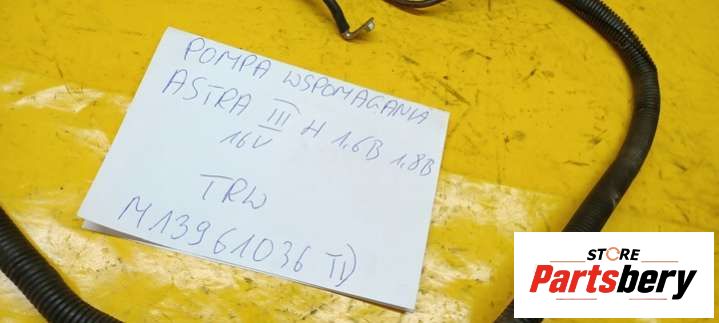 POMPA WSPOMAGANIA
ASTRA III H 1,6B 1,8B
16V
TRW
M13961036 II)
STORE
Partsbery